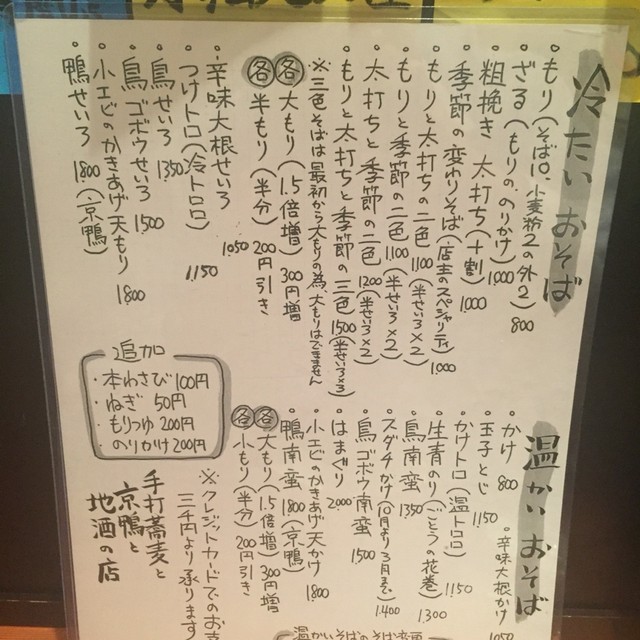 冷たいおそば
・もり(そば10、小麦粉2の外2) 800
・ざる(もりの、のりかけ) 1,000
・粗挽き 太打ち(十割) 1,000
・季節の変わりそば(店主のスペシャリティ) 1,000
・もりと太打ちの二色 1,100(半せいろ×2)
・もりと季節の二色 1,100(半せいろ×2)
・太打ちと季節の二色 1,200(半せいろ×2)
・もりと太打ちと季節の三色 1500(半せいろ×3)
※三色そばは最初から大もりの為、大もりはできません
各 大もり(1.5倍増) 300円増
各 半もり(半分) 200円引き
・辛味大根せいろ 1,050
・つけトロ(冷トロロ) 1,150
・鳥せいろ 1350
・鳥ゴボウせいろ 1500
・小エビのかきあげ天もり 1800
・鴨せいろ 1,800(京鴨)
追加
・本わさび 100円
・ねぎ 50円
・もりつゆ 200円
・のりかけ 200円
温かいおそば
・辛味大根かけ 1050
・かけ 800
・玉子とじ 1150
・かけトロ(温トロロ) 1150
・生青のり(ごとうの花巻) 1,300
・鳥南蛮 1350
・スダチかけ(10月より3月まで) 1,400
・鳥ゴボウ南蛮 1500
・はまぐり 2,000
・小エビのかきあげ天かけ 1,800
・鴨南蛮 1800(京鴨)
各 大もり(1.5倍増) 300円増
各 小もり(半分) 200円引き
※クレジットカードでのお支
三千円より承ります
手打蕎麦と
京鴨と
地酒の店
温かいそばのそば